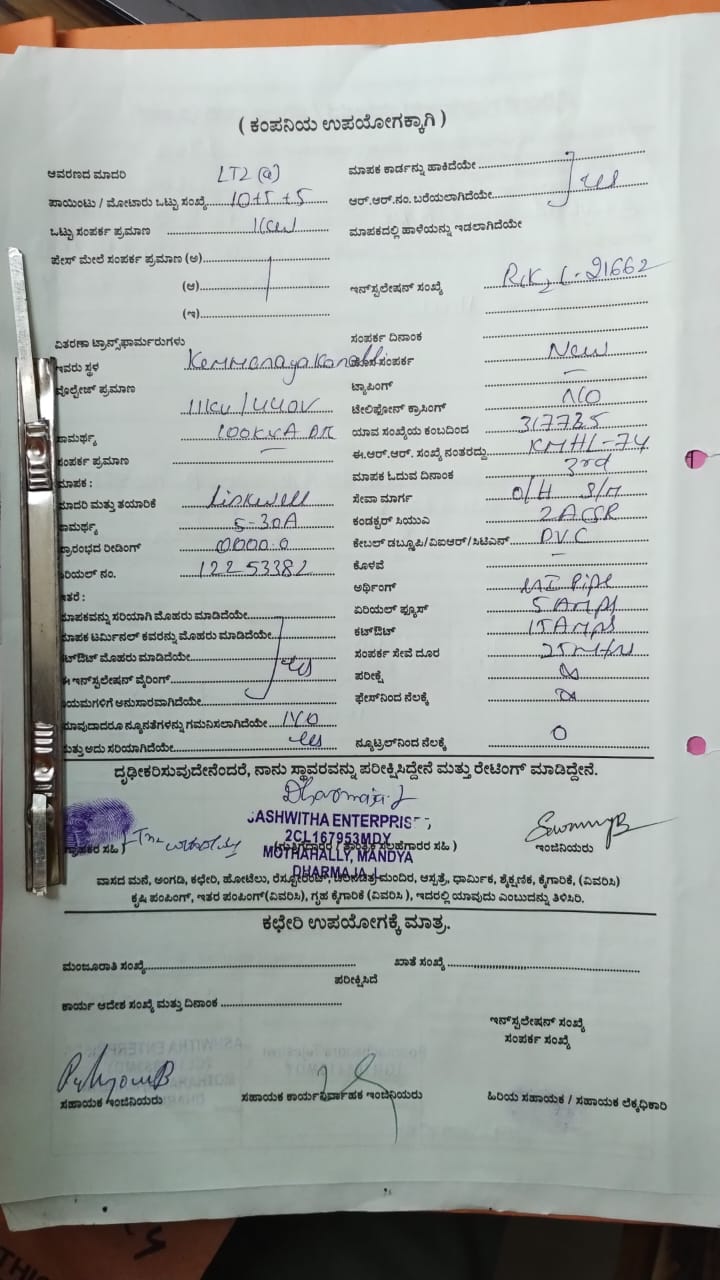 ( ಕಂಪನಿಯ ಉಪಯೋಗಕ್ಕಾಗಿ )
ಆವರಣದ ಮಾದರಿ LT2 (a)
ಪಾಯಿಂಟು / ಮೋಟಾರು ಒಟ್ಟು ಸಂಖ್ಯೆ 10+5+5
ಒಟ್ಟು ಸಂಪರ್ಕ ಪ್ರಮಾಣ 1KW
ಪೇಸ್ ಮೇಲೆ ಸಂಪರ್ಕ ಪ್ರಮಾಣ (ಅ)
(ಆ)
(ಇ)
ವಿತರಣಾ ಟ್ರಾನ್ಸ್‌ಫಾರ್ಮರುಗಳು
ಇವರು ಸ್ಥಳ Kemmanayakanahlli
ವೊಲ್ಟೇಜ್ ಪ್ರಮಾಣ
11KV/440V
ಸಾಮರ್ಥ್ಯ 100KVA
ಸಂಪರ್ಕ ಪ್ರಮಾಣ
ಮಾಪಕ :
ಮಾದರಿ ಮತ್ತು ತಯಾರಿಕೆ Linkwell
ಸಾಮರ್ಥ್ಯ 5-30A
ಪ್ರಾರಂಭದ ರೀಡಿಂಗ್ 0000.0
ರಿಯಲ್ ನಂ. 12253382
ಇತರೆ :
ಮಾಪಕವನ್ನು ಸರಿಯಾಗಿ ಮೊಹರು ಮಾಡಿದೆಯೇ
ಮಾಪಕ ಟರ್ಮಿನಲ್ ಕವರನ್ನು ಮೊಹರು ಮಾಡಿದೆಯೇ
ಕಟ್‌ಔಟ್ ಮೊಹರು ಮಾಡಿದೆಯೇ yes
ಈ ಇನ್‌ಸ್ಟಲೇಷನ್ ವೈರಿಂಗ್
ನಿಯಮಗಳಿಗೆ ಅನುಸಾರವಾಗಿದೆಯೇ
ಯಾವುದಾದರೂ ನ್ಯೂನತೆಗಳನ್ನು ಗಮನಿಸಲಾಗಿದೆಯೇ NO
ಮತ್ತು ಅದು ಸರಿಯಾಗಿದೆಯೇ yes
ಮಾಪಕ ಕಾರ್ಡನ್ನು ಹಾಕಿದೆಯೇ
ಆರ್.ಆರ್.ನಂ. ಬರೆಯಲಾಗಿದೆಯೇ yes
ಮಾಪಕದಲ್ಲಿ ಹಾಳೆಯನ್ನು ಇಡಲಾಗಿದೆಯೇ
ಇನ್‌ಸ್ಟಲೇಷನ್ ಸಂಖ್ಯೆ 21662
ಸಂಪರ್ಕ ದಿನಾಂಕ
ಹೊಸ ಸಂಪರ್ಕ New
ಟ್ಯಾಪಿಂಗ್ –
ಟೆಲಿಫೋನ್ ಕ್ರಾಸಿಂಗ್ NO
ಯಾವ ಸಂಖ್ಯೆಯ ಕಂಬದಿಂದ 317725
ಈ.ಆರ್.ಆರ್. ಸಂಖ್ಯೆ ನಂತರದ್ದು KMHL-74
ಮಾಪಕ ಓದುವ ದಿನಾಂಕ 3rd
ಸೇವಾ ಮಾರ್ಗ O/H S/M
ಕಂಡಕ್ಟರ್ ಸಿಯುಎ 2ACSR
ಕೇಬಲ್ ಡಬ್ಲ್ಯೂಪಿ/ವಿಐಆರ್/ಸಿಟಿಎಸ್ PVC
ಕೊಳವೆ –
ಅರ್ಥಿಂಗ್ Pipe
ಏರಿಯಲ್ ಫ್ಯೂಸ್ 5 Amps
ಕಟ್‌ಔಟ್ 15Amps
ಸಂಪರ್ಕ ಸೇವೆ ದೂರ
ಪರೀಕ್ಷೆ
ಫೇಸ್‌ನಿಂದ ನೆಲಕ್ಕೆ
ನ್ಯೂಟ್ರಲ್‌ನಿಂದ ನೆಲಕ್ಕೆ 0
ದೃಢೀಕರಿಸುವುದೇನೆಂದರೆ, ನಾನು ಸ್ಥಾವರವನ್ನು ಪರೀಕ್ಷಿಸಿದ್ದೇನೆ ಮತ್ತು ರೇಟಿಂಗ್ ಮಾಡಿದ್ದೇನೆ.
Dharmaja.J
JASHWITHA ENTERPRISES
2CL167953MDY
MOTHAHALLY, MANDYA
DHARMAJA.J
ಗ್ರಾಹಕರ ಸಹಿ )
(ಗುತ್ತಿಗೆದಾರರ / ತಾಂತ್ರಿಕ ಸಲಹೆಗಾರರ ಸಹಿ )
SwamyB
ಇಂಜಿನಿಯರು
ವಾಸದ ಮನೆ, ಅಂಗಡಿ, ಕಛೇರಿ, ಹೋಟೆಲು, ರೆಸ್ಟೋರೆಂಟ್, ಚಲನಚಿತ್ರ ಮಂದಿರ, ಆಸ್ಪತ್ರೆ, ಧಾರ್ಮಿಕ, ಶೈಕ್ಷಣಿಕ, ಕೈಗಾರಿಕೆ, (ವಿವರಿಸಿ)
ಕೃಷಿ ಪಂಪಿಂಗ್, ಇತರ ಪಂಪಿಂಗ್(ವಿವರಿಸಿ), ಗೃಹ ಕೈಗಾರಿಕೆ (ವಿವರಿಸಿ ), ಇದರಲ್ಲಿ ಯಾವುದು ಎಂಬುದನ್ನು ತಿಳಿಸಿರಿ.
ಕಛೇರಿ ಉಪಯೋಗಕ್ಕೆ ಮಾತ್ರ.
ಮಂಜೂರಾತಿ ಸಂಖ್ಯೆ ಖಾತೆ ಸಂಖ್ಯೆ
ಪರೀಕ್ಷಿಸಿದೆ
ಕಾರ್ಯ ಆದೇಶ ಸಂಖ್ಯೆ ಮತ್ತು ದಿನಾಂಕ
ಇನ್‌ಸ್ಟಲೇಷನ್ ಸಂಖ್ಯೆ
ಸಂಪರ್ಕ ಸಂಖ್ಯೆ
ಸಹಾಯಕ ಇಂಜಿನಿಯರು ಸಹಾಯಕ ಕಾರ್ಯನಿರ್ವಾಹಕ ಇಂಜಿನಿಯರು ಹಿರಿಯ ಸಹಾಯಕ / ಸಹಾಯಕ ಲೆಕ್ಕಾಧಿಕಾರಿ